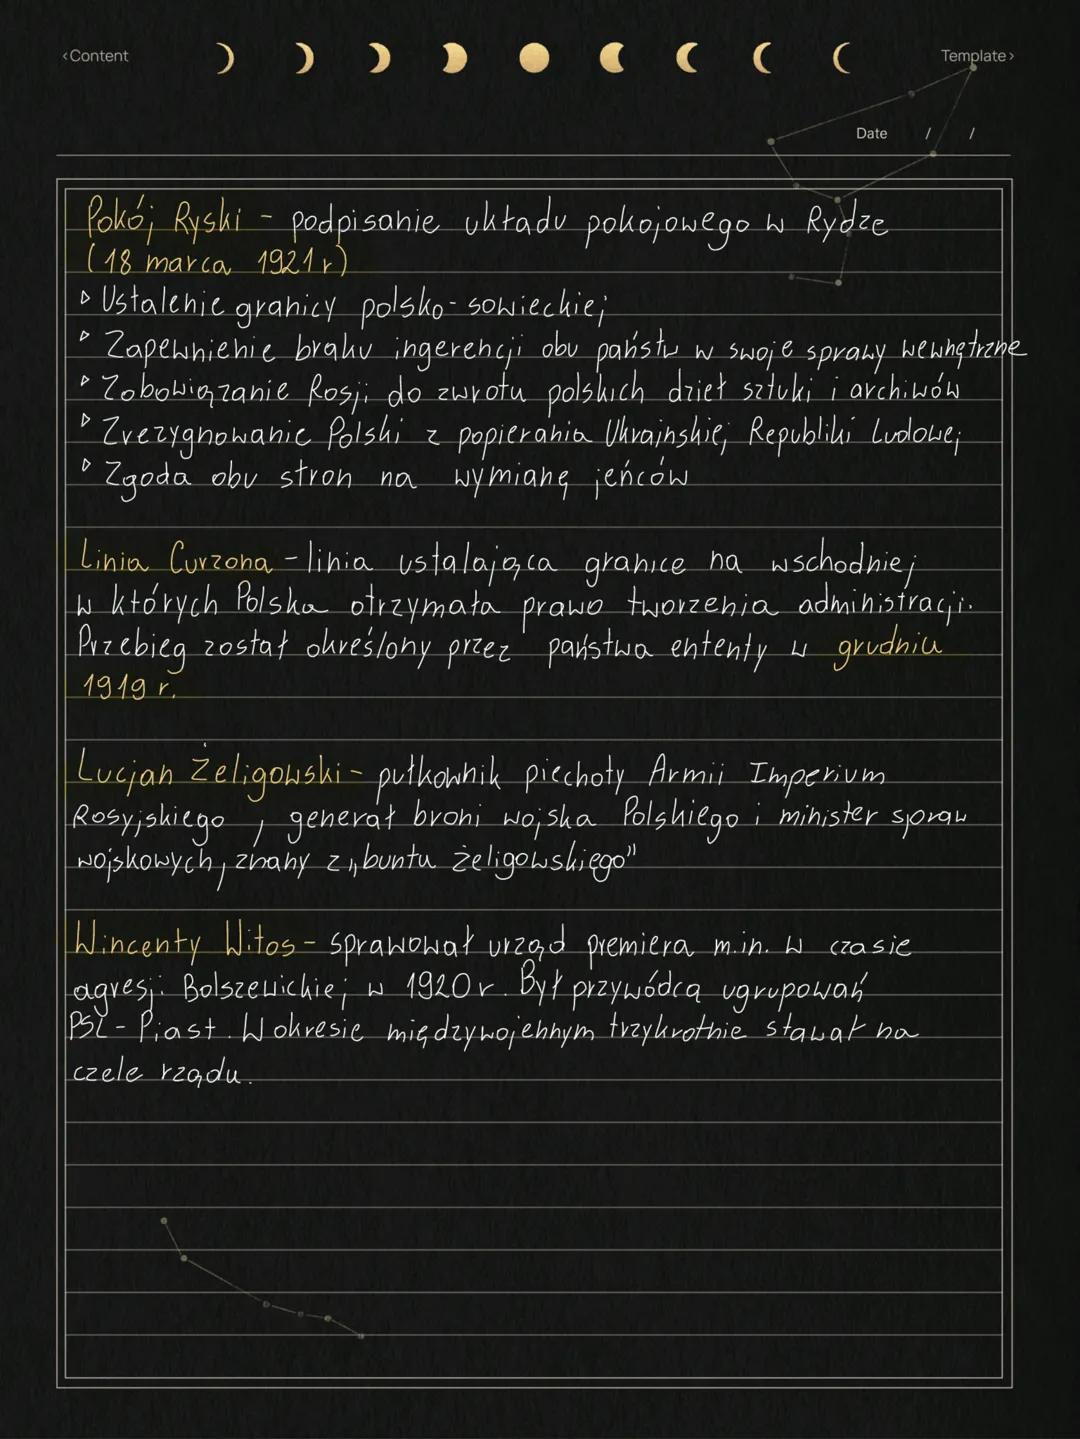 ‹Content
Template›
Date / /
Pokój Ryski - podpisanie układu pokojowego w Rydze
(18 marca 1921 r)
▹ Ustalenie granicy polsko-sowieckiej
▹ Zapewnienie braku ingerencji obu państw w swoje sprawy wewnętrzne
▹ Zobowiązanie Rosji do zwrotu polskich dzieł sztuki i archiwów
▹ Zrezygnowanie Polski z popierania Ukraińskiej Republiki Ludowej
▹ Zgoda obu stron na wymianę jeńców
Linia Curzona - linia ustalająca granice na wschodniej
w których Polska otrzymała prawo tworzenia administracji.
Przebieg został określony przez państwa ententy w grudniu
1919 r.
Lucjan Żeligowski - pułkownik piechoty Armii Imperium
Rosyjskiego, generał broni wojska Polskiego i minister spraw
wojskowych, znany z „buntu żeligowskiego"
Wincenty Witos - sprawował urząd premiera m.in. w czasie
agresji Bolszewickiej w 1920 r. Był przywódcą ugrupowań
PSL - Piast. W okresie międzywojennym trzykrotnie stawał na
czele rządu.